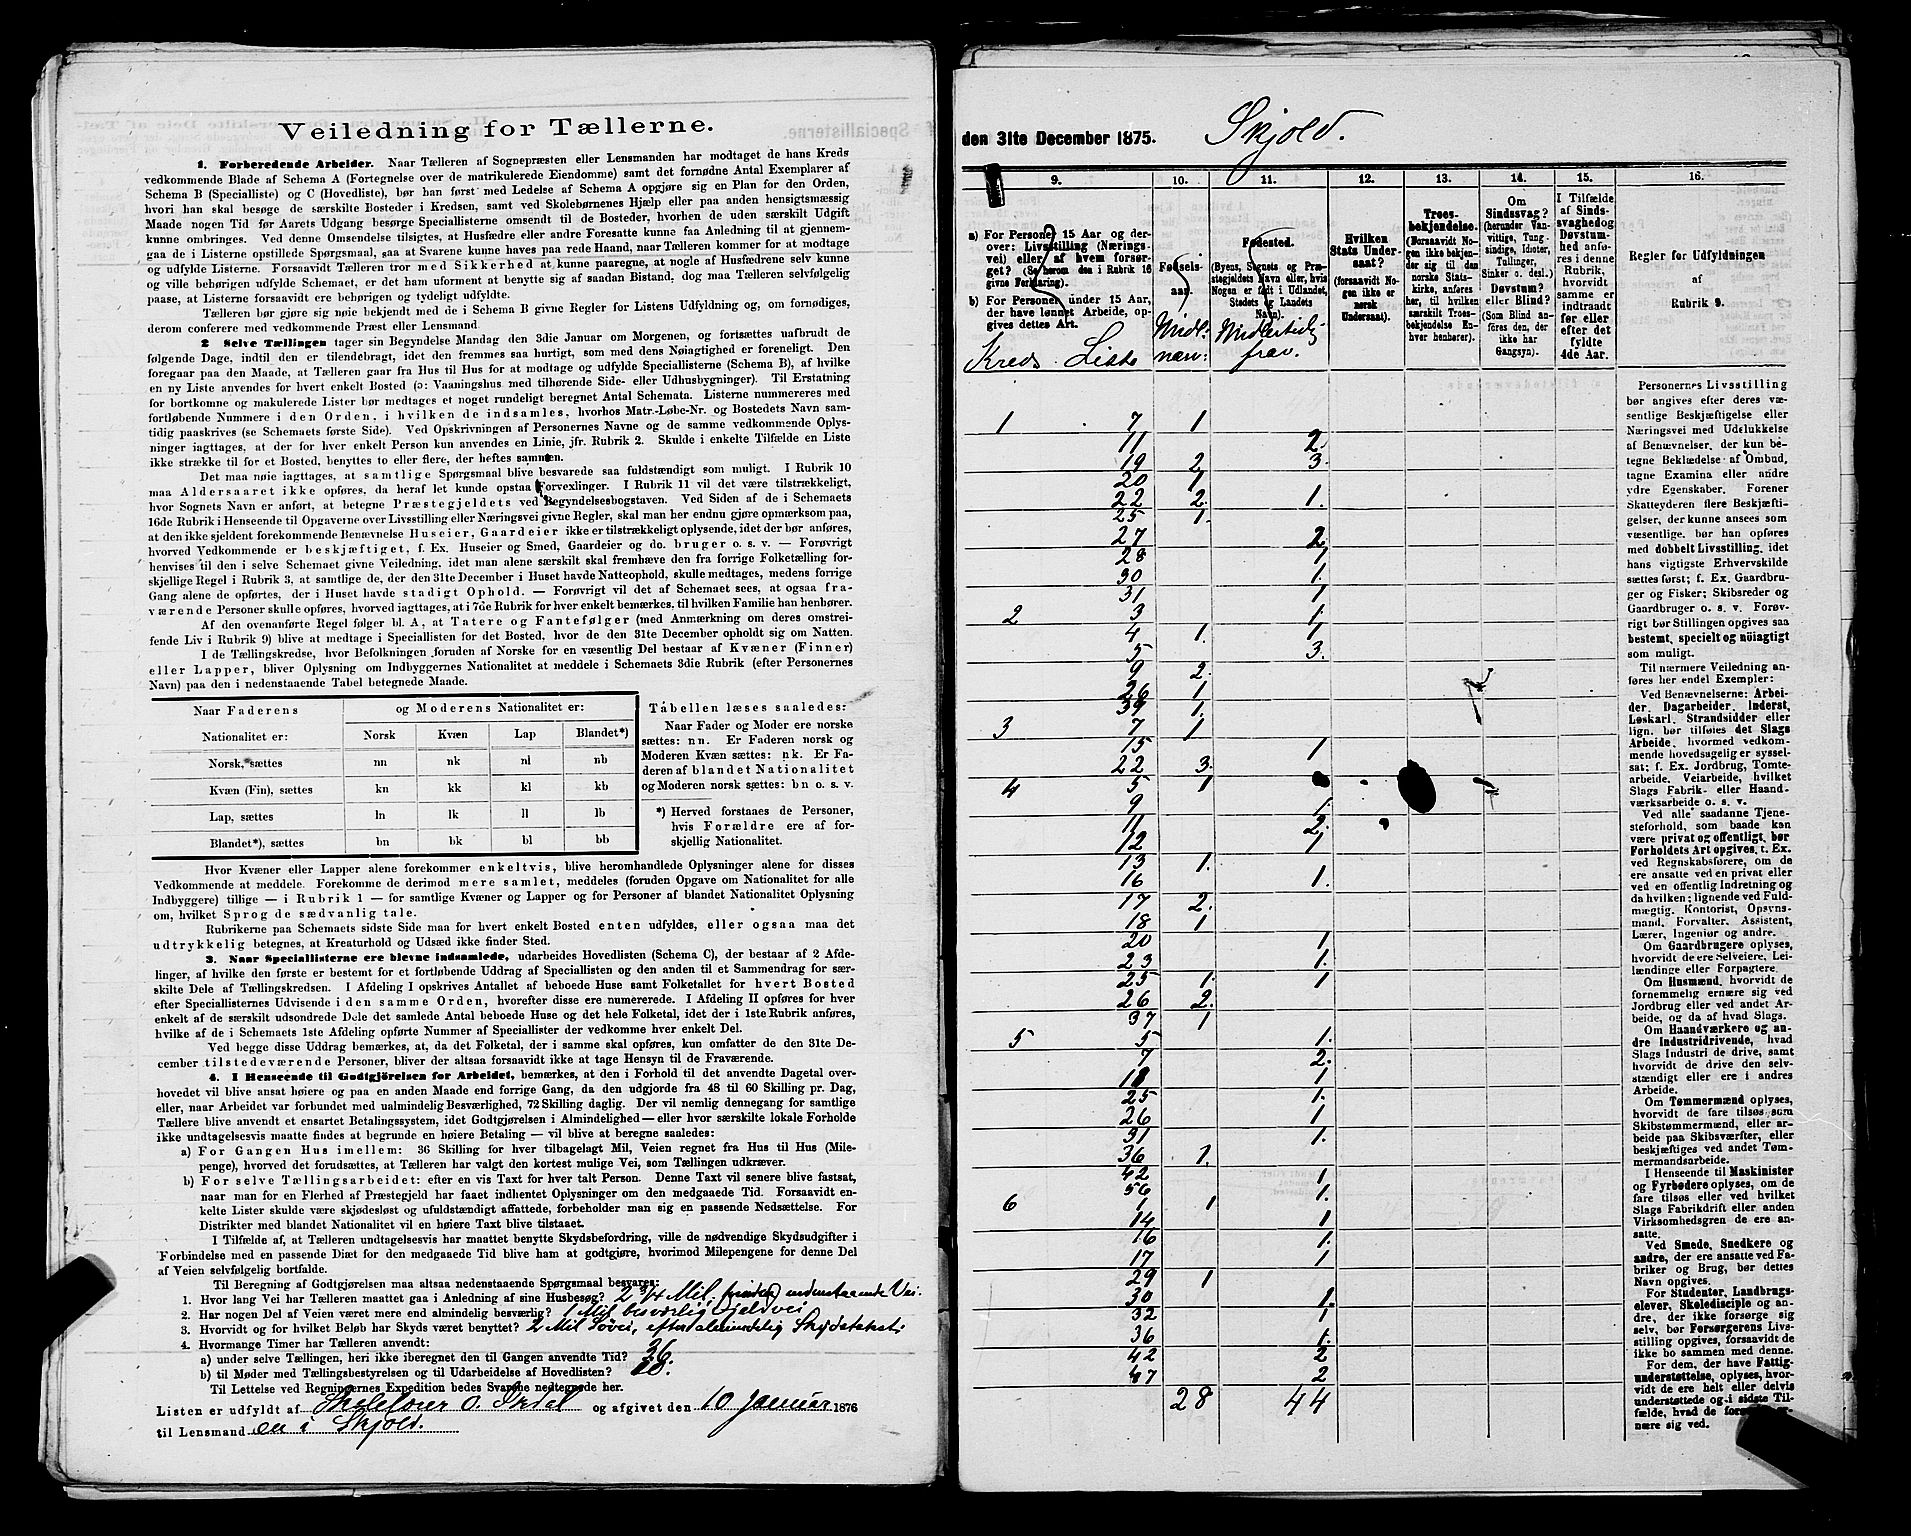 Veiledning for Tællerne.
1. Forberedende Arbeider. Naar Tælleren af Sognepræsten eller Lensmanden har modtaget de hans Kreds
vedkommende Blade af Schema A (Fortegnelse over de matrikulerede Eiendomme) samt det fornødne Antal Exemplarer af
Schema B (Specialliste) og C (Hovedliste), bør han først med Ledelse af Schema A opgjøre sig en Plan for den Orden,
hvori han skal besøge de særskilte Bosteder i Kredsen, samt ved Skolebørnenes Hjælp eller paa anden hensigtsmæssig
Maade nogen Tid før Aarets Udgang besørge Speciallisterne omsendt til de Bosteder, hvorhen de uden særskilt Udgift
kunne ombringes. Ved denne Omsendelse tilsigtes, at Husfædre eller andre Foresatte kunne faa Anledning til at gjennem-
gaa de i Listerne opstillede Spørgsmaal, saa at Svarene kunne haves paa rede Haand, naar Tælleren kommer for at modtage
og udfylde Listerne. Forsaavidt Tælleren tror med Sikkerhed at kunne paaregne, at nogle af Husfædrene selv kunne
og ville behørigen udfylde Schemaet, er det ham uforment at benytte sig af saadan Bistand, dog maa Tælleren selvfølgelig
paase, at Listerne forsaavidt ere behørigen og tydeligt udfyldte.
Tælleren bør gjøre sig nøie bekjendt med de i Schema B givne Regler for Listens Udfyldning og, om fornødiges,
derom conferere med vedkommende Præst eller Lensmand
2 Selve Tællingen tager sin Begyndelse Mandag den 3die Januar om Morgenen, og fortsættes uafbrudt de
følgende Dage, indtil den er tilendebragt, idet den fremmes saa hurtigt, som med dens Nøiagtighed er foreneligt. Den
foregaar paa den Maade, at Tælleren gaar fra Hus til Hus for at modtage og udfylde Speciallisterne (Schema B), af hvilke
en ny Liste anvendes for hvert enkelt Bosted (ɔ: Vaaningshus med tilhørende Side- eller Udhusbygninger). Til Erstatning
for bortkomne og makulerede Lister bør medtages et noget rundeligt beregnet Antal Schemata. Listerne nummereres med
fortløbende Nummere i den Orden, i hvilken de indsamles, hvorhos Matr.-Løbe-Nr. og Bostedets Navn sam-
tidig paaskrives (se Schemaets første Side). Ved Opskrivningen af Personernes Navne og de samme vedkommende Oplys-
ninger iagttages, at der for hver enkelt Person kun anvendes en Linie, jfr. Rubrik 2. Skulde i enkelte Tilfælde en Liste
ikke strække til for et Bosted, benyttes to eller flere, der heftes sammen.
Det maa nøie iagttages, at samtlige Spørgsmaal blive besvarede saa fuldstændigt som muligt. I Rubrik 10
maa Aldersaaret ikke opføres, da heraf let kunde opstaa Forvexlinger. I Rubrik 11 vil det være tilstrækkeligt,
hvor Sognets Navn er anført, at betegne Præstegjeldets ved Begyndelsesbogstaven. Ved Siden af de i Schemaets
16de Rubrik i Henseende til Opgaverne over Livsstilling eller Næringsvei givne Regler, skal man her endnu gjøre opmærksom paa,
at den ikke sjeldent forekommende Benævnelse Huseier, Gaardeier ikke er tilstrækkeligt oplysende, idet der bør anføres,
hvorved Vedkommende er beskjæftiget, f. Ex. Huseier og Smed, Gaardeier og do. bruger o. s. v. — Forøvrigt
henvises til den i selve Schemaet givne Veiledning, idet man alene særskilt skal fremhæve den fra forrige Folketælling for-
skjellige Regel i Rubrik 3, at samtlige de, der den 31te December i Huset havde Natteophold, skulle medtages, medens forrige
Gang alene de opførtes, der i Huset havde stadigt Ophold. — Forøvrigt vil det af Schemaet sees, at ogsaa fra-
værende Personer skulle opføres, hvorved iagttages, at i 7de Rubrik for hver enkelt bemærkes, til hvilken Familie han henhører.
Af den ovenanførte Regel følger bl. A, at Tatere og Fantefølger (med Anmærkning om deres omstrei-
fende Liv i Rubrik 9) blive at medtage i Speciallisten for det Bosted, hvor de den 31te December opholdt sig om Natten.
I de Tællingskredse, hvor Befolkningen foruden af Norske for en væsentlig Del bestaar af Kvæner (Finner)
eller Lapper, bliver Oplysning om Indbyggernes Nationalitet at meddele i Schemaets 3die Rubrik (efter Personernes
Navn) paa den i nedenstaaende Tabel betegnede Maade.
Naar Faderens Nationalitet er: og Moderens Nationalitet er:
Norsk Kvæn Lap Blandet*)
Norsk, sættes nn nk nl nb
Kvæn (Fin), sættes kn kk kl kb
Lap, sættes ln lk ll lb
Blandet*), sættes bn bk bl bb
Tabellen læses saaledes:
Naar Fader og Moder ere norske
sættes: nn. Er Faderen norsk og
Moderen Kvæn sættes: nk. Er Fa-
deren af blandet Nationalitet
og Moderen norsk sættes: bn o. s. v.
*) Herved forstaaes de Personer,
hvis Forældre ere af for-
skjellig Nationalitet.
Hvor Kvæner eller Lapper alene forekommer enkeltvis, blive heromhandlede Oplysninger alene for disses
Vedkommende at meddele. Forekomme de derimod mere samlet, meddeles (foruden Opgave om Nationalitet for alle
Indbyggere) tillige — i Rubrik 1 — for samtlige Kvæner og Lapper og for Personer af blandet Nationalitet Oplysning
om, hvilket Sprog de sædvanlig tale.
Rubrikerne paa Schemaets sidste Side maa for hvert enkelt Bosted enten udfyldes, eller ogsaa maa det
udtrykkelig betegnes, at Kreaturhold og Udsæd ikke finder Sted.
3. Naar Speciallisterne ere blevne indsamlede, udarbeides Hovedlisten (Schema C), der bestaar af 2 Afde-
linger, af hvilke den første er bestemt for et fortløbende Uddrag af Speciallisten og den anden til et Sammendrag for sær-
skilte Dele af Tællingskredsen. I Afdeling I opskrives Antallet af beboede Huse samt Folketallet for hvert Bosted
efter Speciallisternes Udvisende i den samme Orden, hvorefter disse ere nummererede. I Afdeling II opføres for hver
enkelt af de særskilt udsondrede Dele det samlede Antal beboede Huse og det hele Folketal, idet der i 1ste Rubrik anføres,
hvilke af de i Schemaets 1ste Afdeling opførte Nummer af Speciallister der vedkomme hver enkelt Del.
Ved begge disse Uddrag bemærkes, at, da det Folketal, der i samme skal opføres, kun omfatter de den 31te De-
cember tilstedeværende Personer, bliver der altsaa forsaavidt ikke at tage Hensyn til de Fraværende.
4. I Henseende til Godtgjörelsen for Arbeidet, bemærkes, at den i Forhold til det anvendte Dagetal over-
hovedet vil blive ansat høiere og paa en anden Maade end forrige Gang, da den udgjorde fra 48 til 60 Skilling pr. Dag,
eller, naar Arbeidet var forbundet med ualmindelig Besværlighed, 72 Skilling daglig. Der vil nemlig dennegang for samtlige
Tællere blive anvendt et ensartet Betalingssystem, idet Godtgjørelsen i Almindelighed — eller hvor særskilte lokale Forholde
ikke undtagelsesvis maatte findes at begrunde en høiere Betaling — vil blive at beregne saaledes:
a) For Gangen Hus imellem: 36 Skilling for hver tilbagelagt Mil, Veien regnet fra Hus til Hus (Mile-
penge), hvorved det forudsættes, at Tælleren har valgt den kortest mulige Vei, som Tællingen udkræver.
b) For selve Tællingsarbeidet: efter en vis Taxt for hver talt Person. Denne Taxt vil senere blive fastsat,
naar man for en Flerhed af Præstegjeld har faaet indhentet Oplysninger om den medgaaede Tid. Forsaavidt en-
kelte Lister skulde være skjødesløst og ufuldstændigt affattede, forbeholder man sig en passende Nedsættelse. For
Distrikter med blandet Nationalitet vil en høiere Taxt blive tilstaaet.
I Tilfælde af, at Tælleren undtagelsesvis har maattet benytte Skydsbefordring, ville de nødvendige Skydsudgifter i
Forbindelse med en passende Diæt for den medgaaede Tid blive ham at godtgjøre, hvorimod Milepengene for denne Del
af Veien selvfølgelig bortfalde.
Til Beregning af Godtgjørelsen maa altsaa nedenstaaende Spørgsmaal besvares:
1. Hvor lang Vei har Tælleren maattet gaa i Anledning af sine Husbesøg? 2 3/4 Mil. undenstaaende Vei.
2. Har nogen Del af Veien været mere end almindelig besværlig? 1 Mil besværlig Fjeldvei
3. Hvorvidt og for hvilket Beløb har Skyds været benyttet? 2 Mil Søvei, efter almindelig Skydstakst:
4. Hvormange Timer har Tælleren anvendt:
a) under selve Tællingen, heri ikke iberegnet den til Gangen anvendte Tid? 36.
b) til Møder med Tællingsbestyrelsen og til Udarbeidelse af Hovedlisten? 20.
Til Lettelse ved Regningernes Expedition bedes Svarene nedtegnede her.
Listen er udfyldt af og afgivet den 10 Januar 1876
til Lensmanden i Skjold.
den 31te December 1875. Skjold.
9. 10. 11. 12. 13. 14. 15. 16.
a) For Personer 15 Aar og der-
over: Livsstilling (Nærings-
vei) eller af hvem forsør-
get? (Se herom den i Rubrik 16
givne Forklaring).
b) For Personer under 15 Aar,
der have lønnet Arbeide, op-
gives dettes Art.
Kreds Liste
Fødsels-
aar.
Midl:
nærv:
Fødested.
(Byens, Sognets og Præ-
stegjeldets Navn eller, hvis
Nogen er født i Udlandet,
Stedets og Landets
Navn).
Midlertidig
frav.
Hvilken
Stats Under-
saat?
(forsaavidt No-
gen ikke er
norsk
Undersaat).
Troes-
bekjendelse.
(Forsaavidt No-
gen ikke bekjen-
der sig til den
norske Stats-
kirke, anføres
her, til hvilken
særskilt Troes-
bekjendelse En-
hver henhører).
Om
Sindssvag?
(herunder Van-
vittige, Tung-
sindige, Idioter,
Tullinger,
Sinker o. desl.)
Døvstum?
eller Blind?
(Som Blind an-
føres den, der
ikke har
Gangsyn).
I Tilfælde
af Sinds-
svaghed og
Døvstum-
hed anfø-
res i denne
Rubrik,
hvorvidt
samme er
indtraadt
før eller
efter det
fyldte
4de Aar.
Regler for Udfyldningen
af
Rubrik 9.
1 7 1
11 2.
19 2 3.
20 1
22 2. 1.
25 1.
27 2.
28 1
30 1.
31 1
2 3 1.
4 1. 1
5 3.
9 2.
26 1
39 1.
3 7 1
15 1
22 3.
4 5 1
9 1.
11 2.
12 1
13 1.
16 1.
17 2.
18 1
20 1
23 1.
25 1. 1
26 2.
37 1
5 5 1.
7 2.
18 1
25 1.
26 1
31 1.
36 1.
42 1
56 1.
6 1 1
14 1
16 1.
17 1
29 1
30 1.
32 1
36 1.
42 2
47 2
28 44
Personernes Livsstilling
bør angives efter deres væ-
sentlige Beskjæftigelse eller
Næringsvei med Udelukkelse
af Benævnelser, der kun be-
tegne Beklædelse af Ombud,
tagne Examina eller andre
ydre Egenskaber. Forener
Skatteyderen flere Beskjæfti-
gelser, der kunne ansees som
væsentlige, bør han opføres
med dobbelt Livsstilling, idet
hans vigtigste Erhvervskilde
sættes først; f. Ex. Gaardbru-
ger og Fisker; Skibsreder og
Gaardbruger o. s. v. Forøv-
rigt bør Stillingen opgives saa
bestemt, specielt og nöiagtigt
som muligt.
Til nærmere Veiledning an-
føres her endel Exempler:
Ved Benævnelserne: Arbei-
der, Dagarbeider, Inderst,
Løskarl, Strandsidder eller
lign. bør tilføies det Slags
Arbeide, hvormed vedkom-
mende hovedsagelig er syssel-
sat; f. Ex. Jordbrug, Tomte-
arbeide, Veiarbeide, hvilket
Slags Fabrik- eller Haand-
værksarbeide o. s. v.
Ved alle saadanne Tjene-
steforhold, som baade kan
være privat og offentligt, bør
Forholdets Art opgives, t. Ex.
ved Regnskabsførere, om de
ere ansatte ved en privat eller
ved en offentlig Indretning og
da hvilken; lignende ved Fuld-
mægtig, Kontorist, Opsyns-
mand, Forvalter, Assistent,
Lærer, Ingeniør og andre.
Om Gaardbrugere oplyses,
hvorvidt de ere Selveiere, Lei-
lændinge eller Forpagtere.
Om Husmænd, hvorvidt de
fornemmelig ernære sig ved
Jordbrug eller ved andet Ar-
beide, og da af hvad Slags.
Om Haandværkere og an-
dre Industridrivende, hvad
Slags Industri de drive, samt
hvorvidt de drive den selv-
stændigt eller ere i andres
Arbeide.
Om Tømmermænd oplyses,
hvorvidt de fare tilsøs som
Skibstømmermænd, eller ar-
beide paa Skibsværfter, eller
beskjæftiges ved andet Tøm-
mermandsarbeide.
I Henseende til Maskinister
og Fyrbødere oplyses, om de
fare tilsøs eller ved hvilket
Slags Fabrikdrift eller anden
Virksomhedsgren de ere an-
satte.
Ved Smede, Snedkere og
andre, der ere ansatte ved Fa-
briker og Brug, bør dettes
Navn opgives.
For Studenter, Landbrugs-
elever, Skoledisciple og an-
dre, der ikke forsørge sig
selv, bør Forsørgerens Livs-
stilling opgives, forsaavidt de
ikke bo sammen med denne.
For dem, der have Fattig-
understøttelse, oplyses, hvor-
vidt de ere helt eller delvis
understøttede og i sidste Til-
fælde, hvad de forøvrigt er-
nære sig ved.